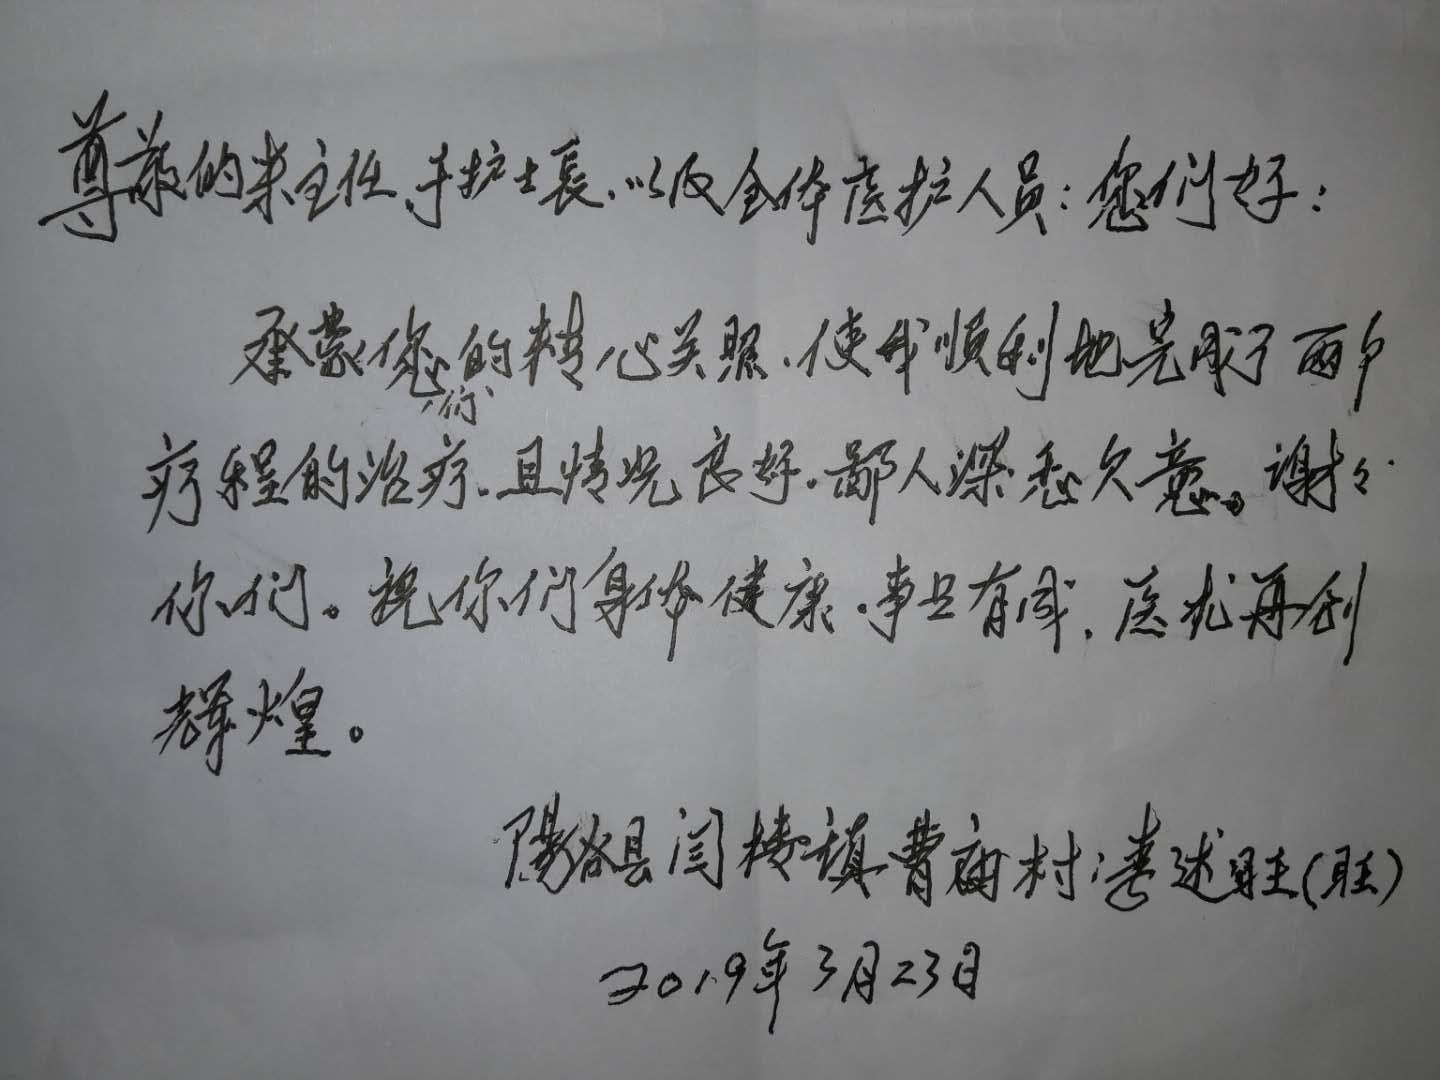 尊敬的米主任、于护士長、以及全体医护人员：您们好：
承蒙您们的精心关照、使我順利地完成了两个
疗程的治疗、且情况良好。鄙人深感欠意。谢々
你们。祝你们身体健康、事业有成、医术再创
辉煌。
县闫楼镇曹庙村：述旺(旺)
2019年3月23日